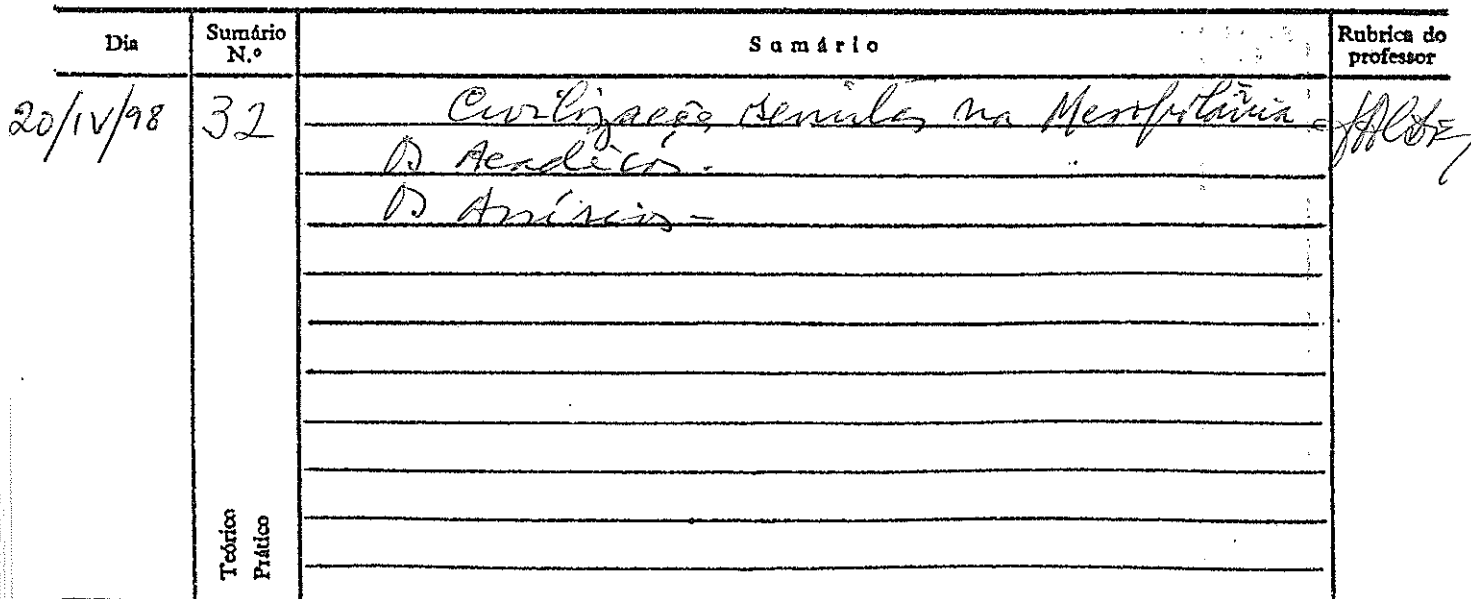 Dia
Sumário N.º
Sumário
Rubrica do professor
20/IV/98
32
Civilizações semitas na Mesopotâmia -
Os Acadécos.
Os Assírios -
Teórico
Prático